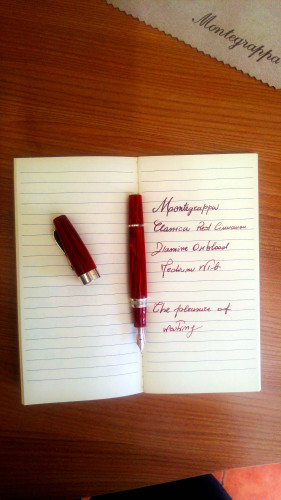 Montegrappa
Montegrappa
Classica Red Cinnamon
Diamine Oxblood
Medium Nib
The pleasure of
writing